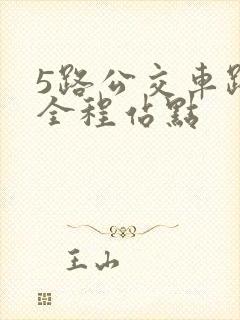 5路公交車路
全程佔點
王山